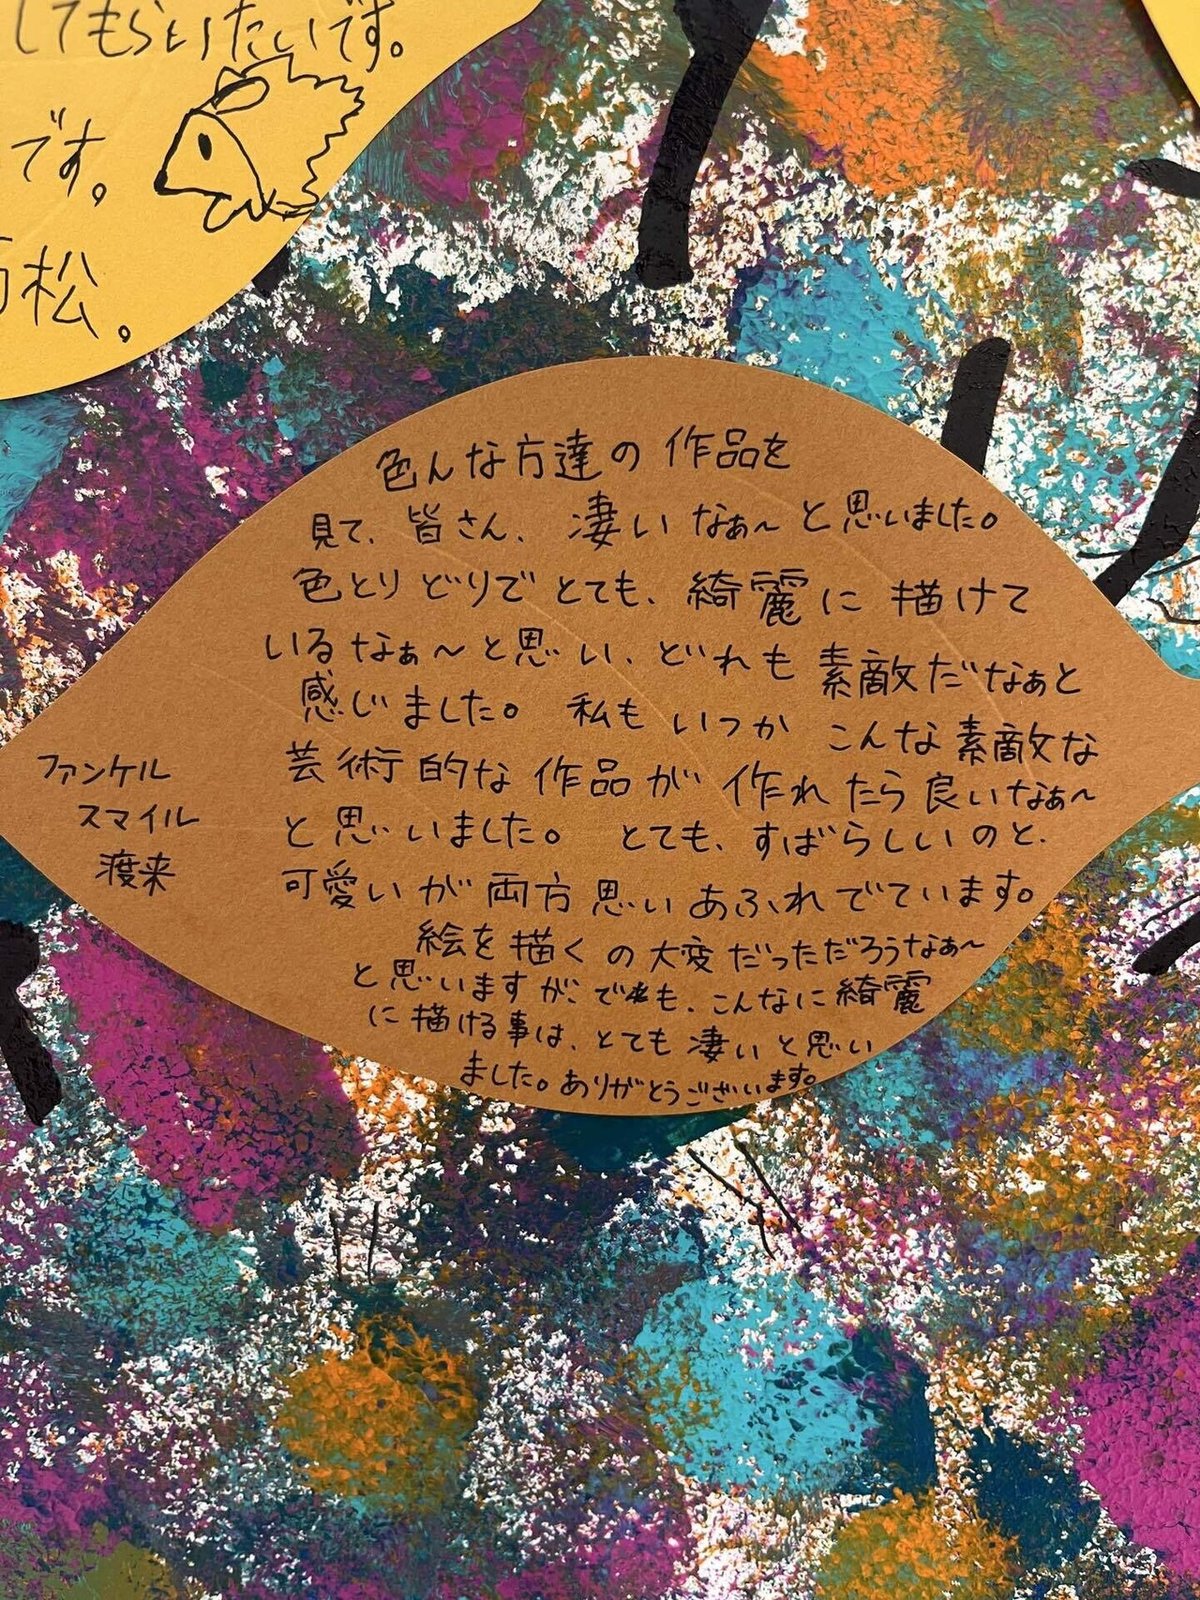 してもらいたいです。
です。
松。
色んな方達の作品を
見て、皆さん、凄いなぁ〜と思いました。
色とりどりでとても、綺麗に描けて
いるなぁ〜と思い、どれも素敵だなぁと
感じました。私もいつかこんな素敵な
芸術的な作品が作れたら良いなぁ〜
と思いました。とても、すばらしいのと、
可愛いが両方思いあふれでています。
絵を描くの大変だっただろうなぁ〜
と思いますが、でも、こんなに綺麗
に描ける事は、とても凄いと思い
ました。ありがとうございます。
ファンケル
スマイル
渡来